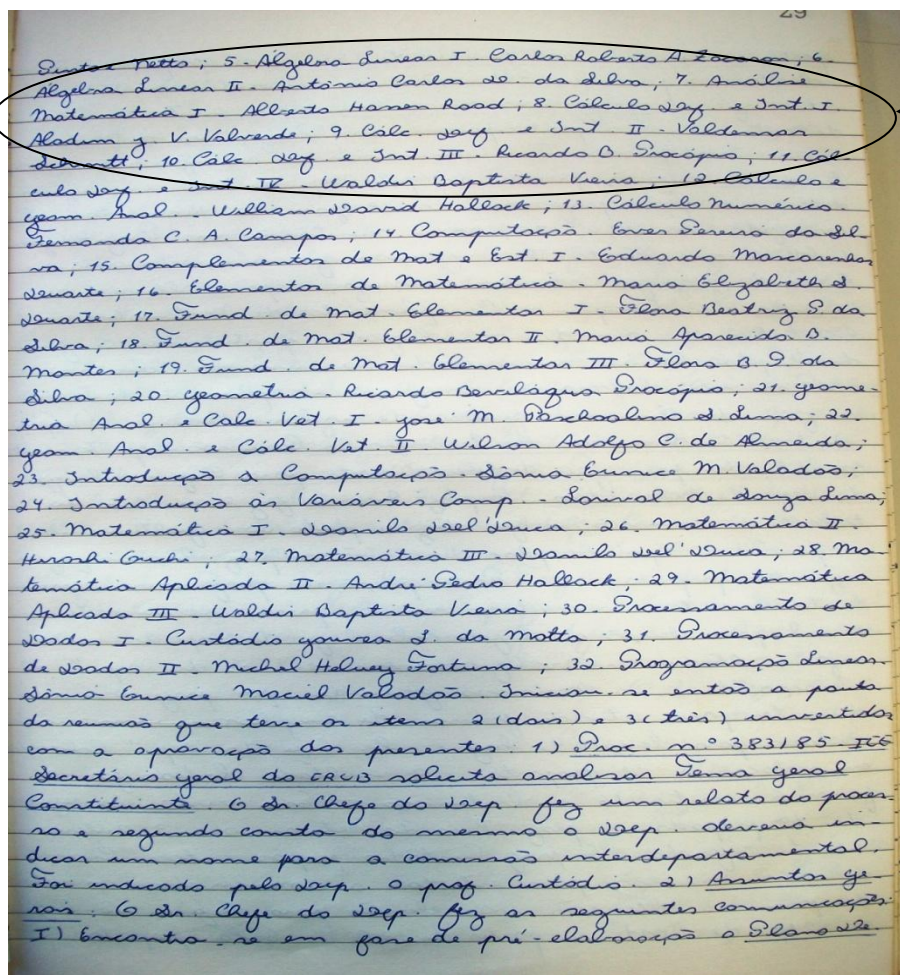 29
Santos Netto; 5. Álgebra Linear I. Carlos Roberto A. Zacaron; 6.
Algebra Linear II. Antônio Carlos da Silva; 7. Análise
Matemática I. Alberto Hassen Raad; 8. Cálculo Dif e Int. I
V. Valverde; 9. Cálc. Dif e Int II - Valdemar
Schmitt; 10. Cálc Dif e Int. III. Ricardo B. Procópio; 11. Cál-
culo Dif. e Int. IV - Waldir Baptista Vieira; 12. Cálculo e
geom. Anal. William David Hallack; 13. Cálculo Numérico.
Fernanda C. A. Campos; 14 Computação. Ever Pereira da Sil-
va; 15. Complementos de Mat e Est. I. Eduardo Mascarenhas
Duarte; 16. Elementos de Matemática. Maria Elizabeth S.
Duarte; 17. Fund. de Mat. Elementar I. Flora Beatriz P. da
Silva; 18. Fund. de Mat. Elementar II. Maria Aparecida B.
Montes; 19. Fund. de Mat. Elementar III. Flora B. P. da
Silva; 20 geometria. Ricardo Bevilaqua Procópio; 21. geome-
tria Anal. e Calc. Vet. I. José M. Paschoalino S Lima; 22.
geom. Anal. e Cálc. Vet. II. Wilson Adolfo C. de Almeida;
23. Introdução a Computação. Sônia Eunice M. Valadão;
24. Introdução às Variáveis Comp. - Lorival de Souza Lima;
25. Matemática I. Danilo Del'Duca; 26. Matemática II.
27. Matemática III. Danilo Del'Duca; 28. Ma-
temática Aplicada II. André Pedro Hallack; 29. Matemática
Aplicada III. Waldir Baptista Vieira; 30. Processamento de
Dados I. Custódio gouvea L. da Motta; 31. Processamento
de Dados II. Michel Fortuna; 32. Programação Linear.
Sônia Eunice Maciel Valadão. Iniciou-se então a pauta
da reunião que teve os itens 2 (dois) e 3 (três) invertidos
com a aprovação dos presentes. 1) Proc. nº 383/85-ICE
Secretário geral do solicita analisar Tema geral
Constituinte. O Sr. Chefe do Dep. fez um relato do proces-
so e segundo consta do mesmo o Dep. deveria in-
dicar um nome para a comissão interdepartamental.
Foi indicado pelo Dep. o prof. Custódio. 2) Assuntos ge-
rais. O Sr. Chefe do Dep. fez as seguintes comunicações:
I) Encontra-se em fase de pré-elaboração o Plano De